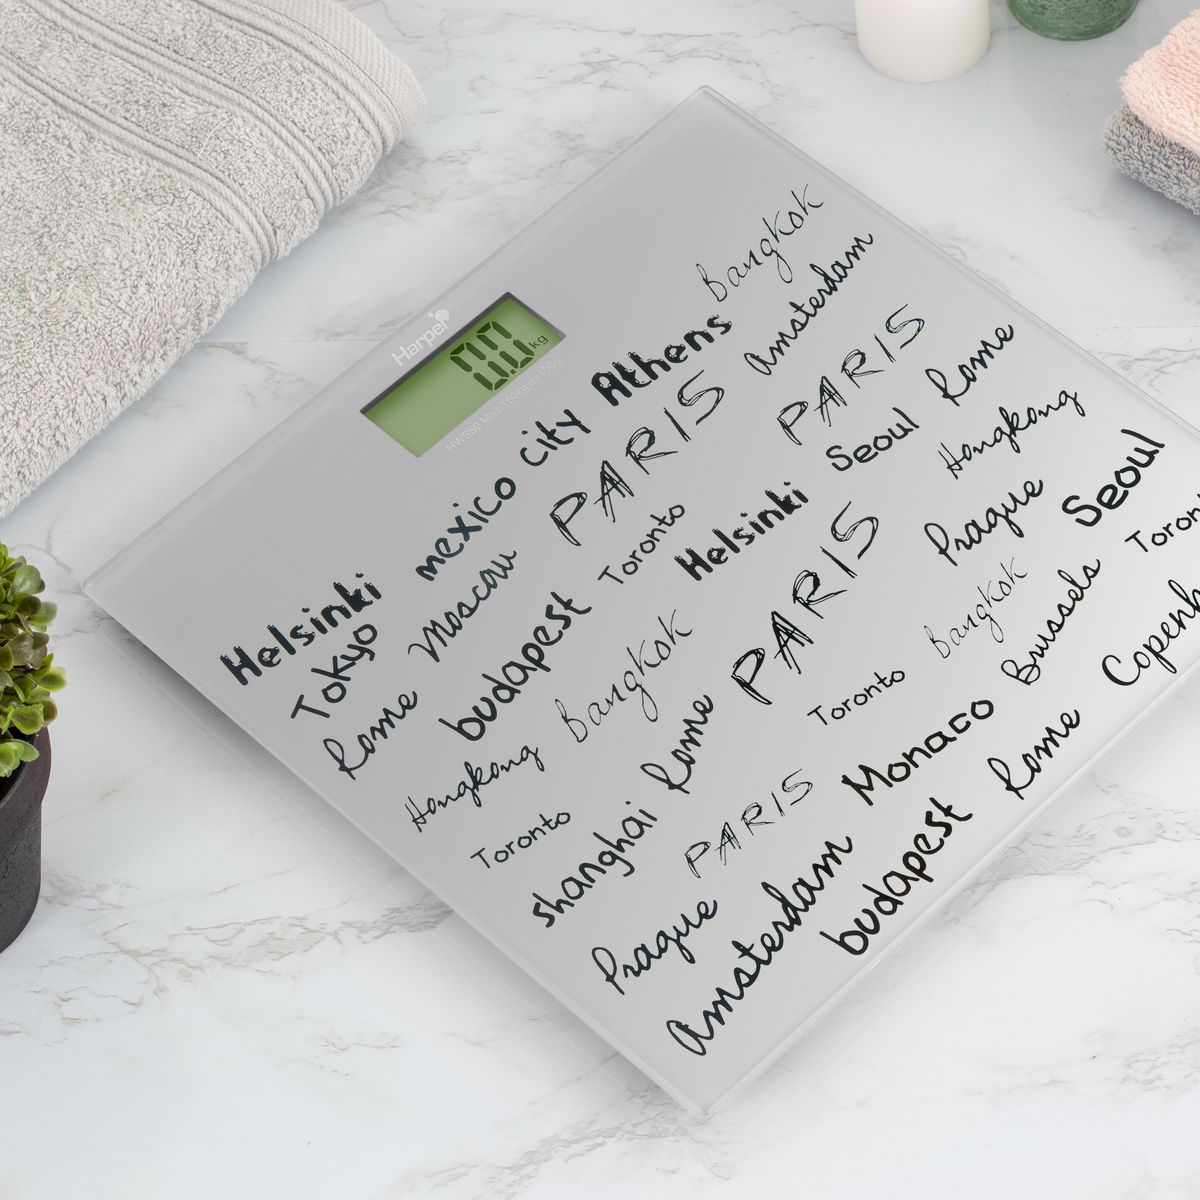 Harper
0.0 kg
HWS60 Max.150kg d=100g
Helsinki mexico city Athens Bangkok
Tokyo Moscow PARIS Amsterdam
Rome budapest Toronto PARIS
Helsinki Seoul Rome
Hongkong Bangkok PARIS Hongkong
Toronto Prague Seoul
shanghai Rome Toronto Bangkok Toron
PARIS Brussels
Prague Monaco Copenh
Amsterdam budapest Rome